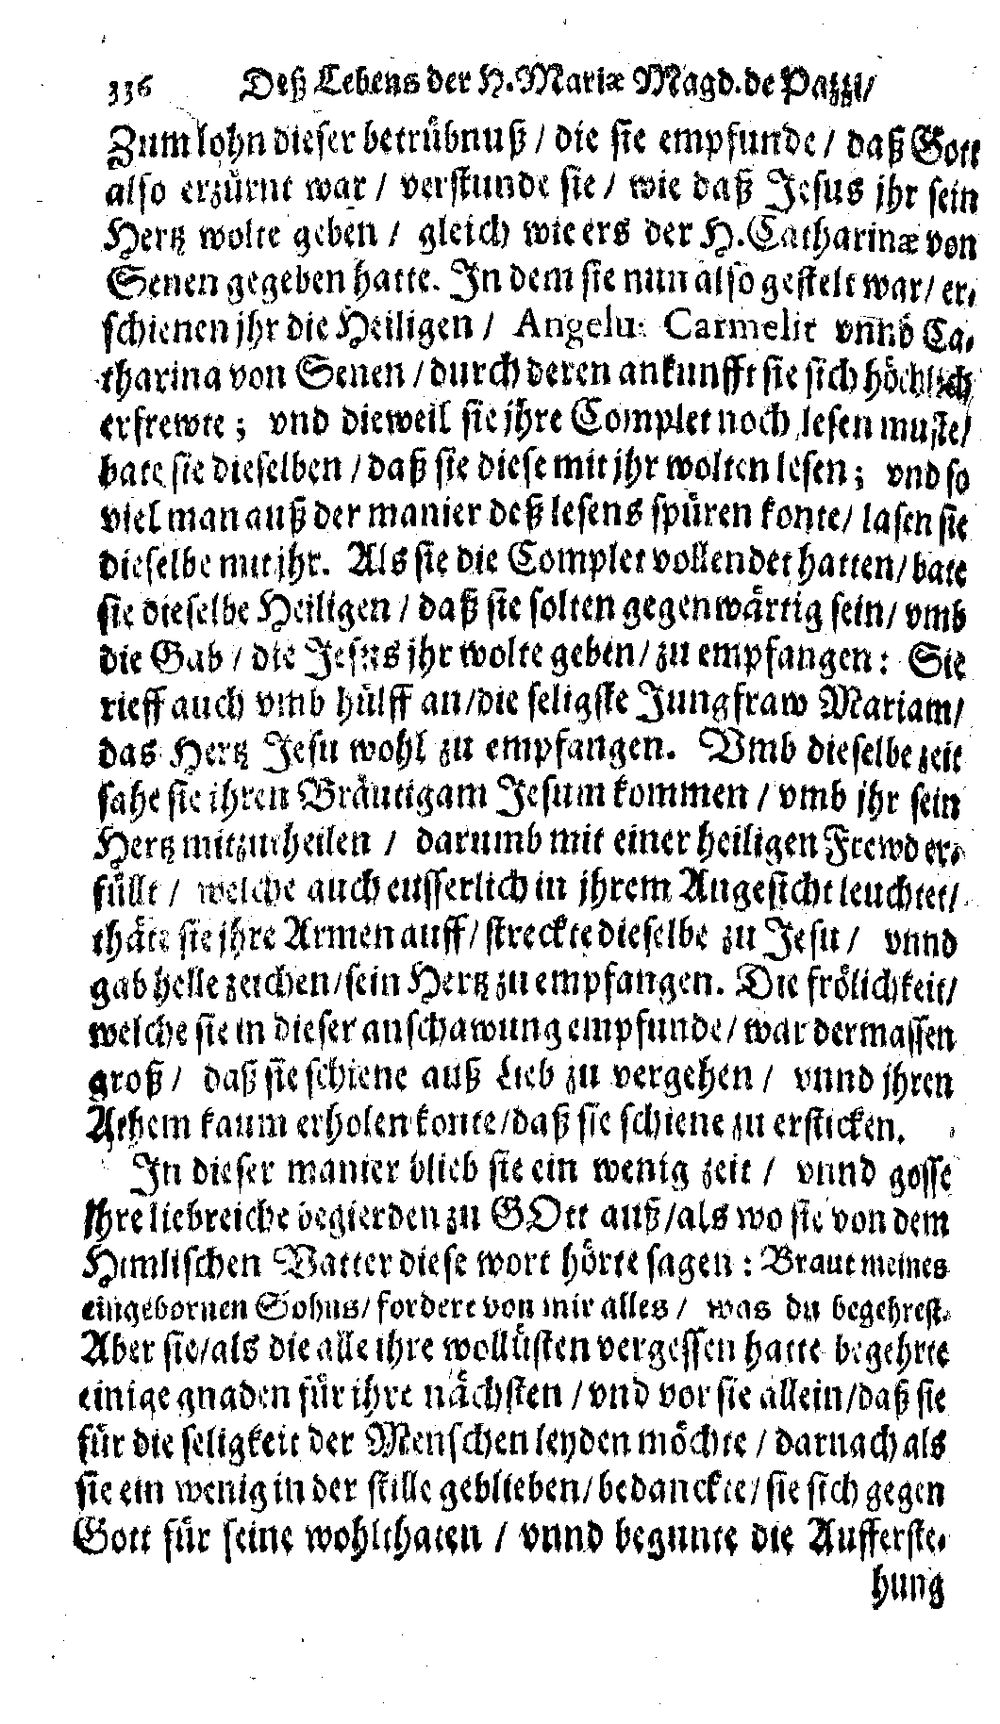 336 Deß Lebens der H. Mariæ Magd. de Pazzi/
Zum lohn dieser betrübnuß / die sie empfunde / daß Gott
also erzürnt war / verstunde sie / wie daß Jesus jhr sein
Hertz wolte geben / gleich wie ers der H. Catharinæ von
Senen gegeben hatte. In dem sie nun also gestelt war / er-
schienen jhr die Heiligen / Angelu: Carmelit vnnd Ca-
tharina von Senen / durch deren ankunfft sie sich höchlich
erfrewte; vnd dieweil sie jhre Complet noch lesen muste/
bate sie dieselben / daß sie diese mit jhr wolten lesen; vnd so
viel man auß der manier deß lesens spüren konte / lasen sie
dieselbe mit jhr. Als sie die Complet vollendet hatten / bate
sie dieselbe Heiligen / daß sie solten gegenwärtig sein / vmb
die Gab / die Jesus jhr wolte geben / zu empfangen: Sie
rieff auch vmb hülff an / die seligste Jungfraw Mariam/
das Hertz Jesu wohl zu empfangen. Vmb dieselbe zeit
sahe sie ihren Bräutigam Jesum kommen / vmb jhr sein
Hertz mitzutheilen / darumb mit einer heiligen Frewd er-
füllt / welche auch eusserlich in jhrem Angesicht leuchtet/
thäte sie jhre Armen auff / streckte dieselbe zu Jesu / vnnd
gab helle zeichen / sein Hertz zu empfangen. Die frölichkeit/
welche sie in dieser anschawung empfunde / war dermassen
groß / daß sie schiene auß Lieb zu vergehen / vnnd jhren
Athem kaum erholen konte / daß sie schiene zu ersticken.
In dieser manier blieb sie ein wenig zeit / vnnd gosse
Ihre liebreiche begierden zu GOtt auß / als wo sie von dem
Himlischen Vatter diese wort hörte sagen: Braut meines
eingebornen Sohns / fordere von mir alles / was du begehrest.
Aber sie / als die alle ihre wollüsten vergessen hatte begehrte
einige gnaden für ihre nächsten / vnd vor sie allein / daß sie
für die seligkeit der Menschen leyden möchte / darnach als
sie ein wenig in der stille geblieben / bedanckte / sie sich gegen
Gott für seine wohlthaten / vnnd begunte die Aufferste-
hung